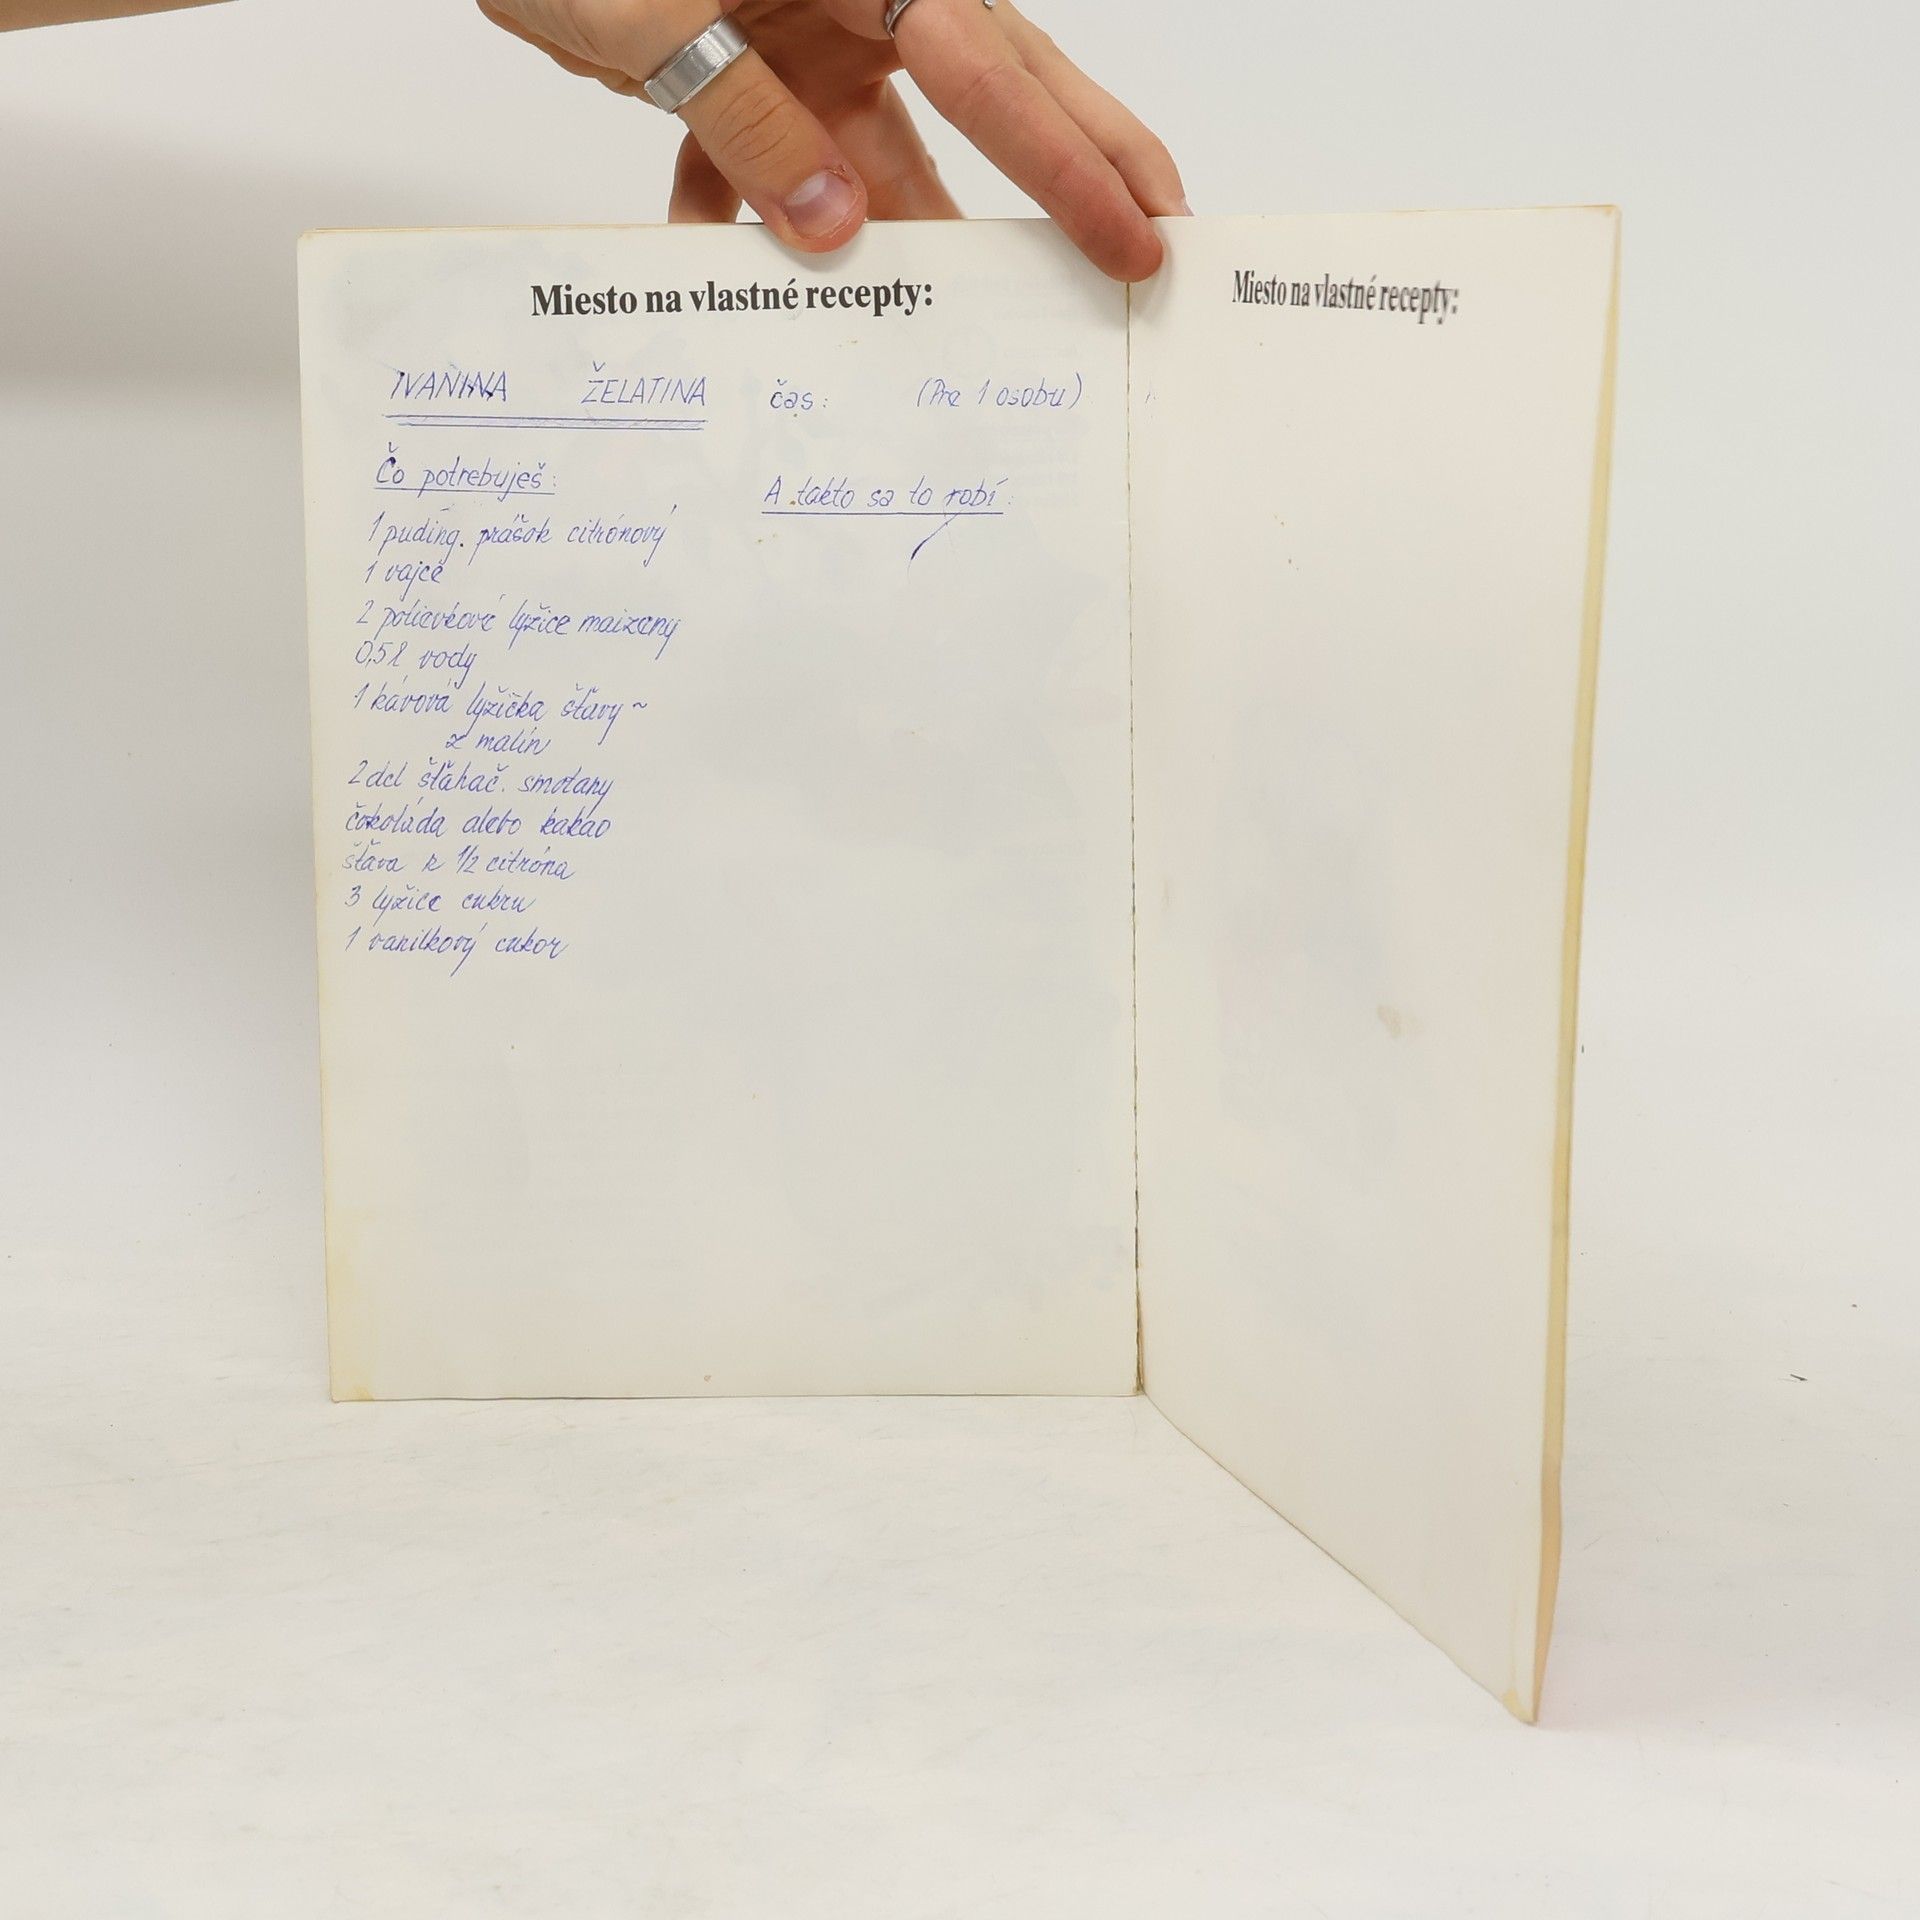 Miesto na vlastné recepty:
IVANINA ŽELATINA čas: (Pre 1 osobu)
Čo potrebuješ:
1 puding. prášok citrónový
1 vajce
2 polievkové lyžice maizeny
0,5 l vody
1 kávová lyžička šťavy ~
z malín
2 dcl šľahač. smotany
čokoláda alebo kakao
šťava z 1/2 citróna
3 lyžice cukru
1 vanilkový cukor
A takto sa to robí:
Miesto na vlastné recepty: